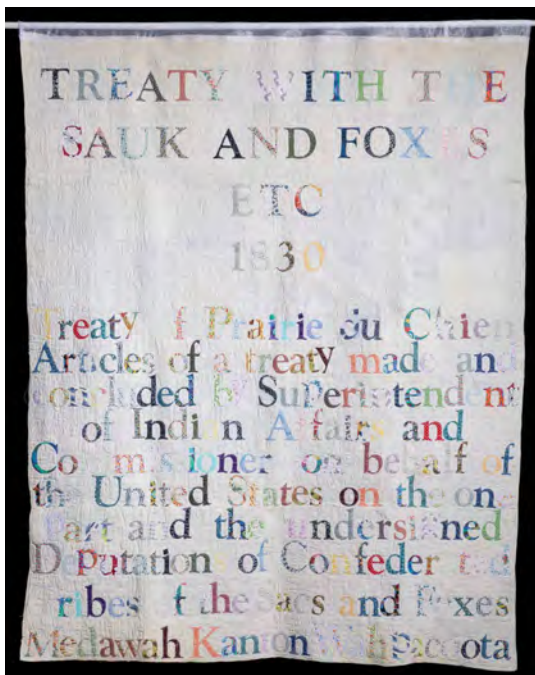 TREATY WITH THE
SAUK AND FOXES
ETC
1830
Treaty of Prairie du Chien
Articles of a treaty made and
concluded by Superintendent
of Indian Affairs and
Commissioner on behalf of
the United States on the one
part and the undersigned
Deputations of Confederated
Tribes of the Sacs and Foxes
Medawah Kanton Wahpacoota